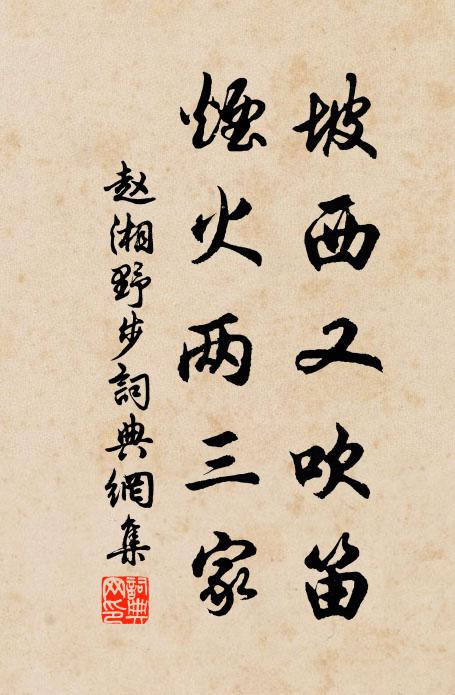 坡西又吹笛
煙火两三家
赵湘野步詞典網集
詞典网印